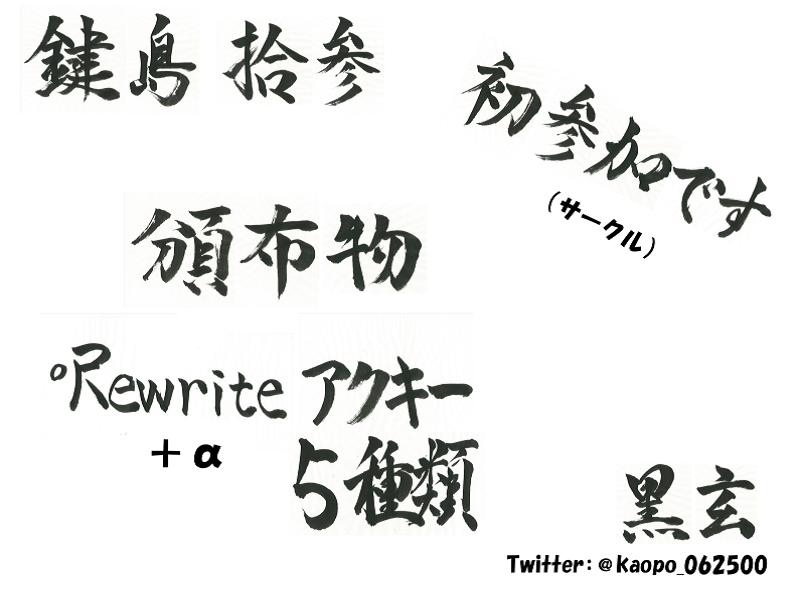 鍵島 拾参
初参加です
(サークル)
頒布物
Rewrite アクキー
+α
5種類
黒玄
Twitter:@Kaopo_062500